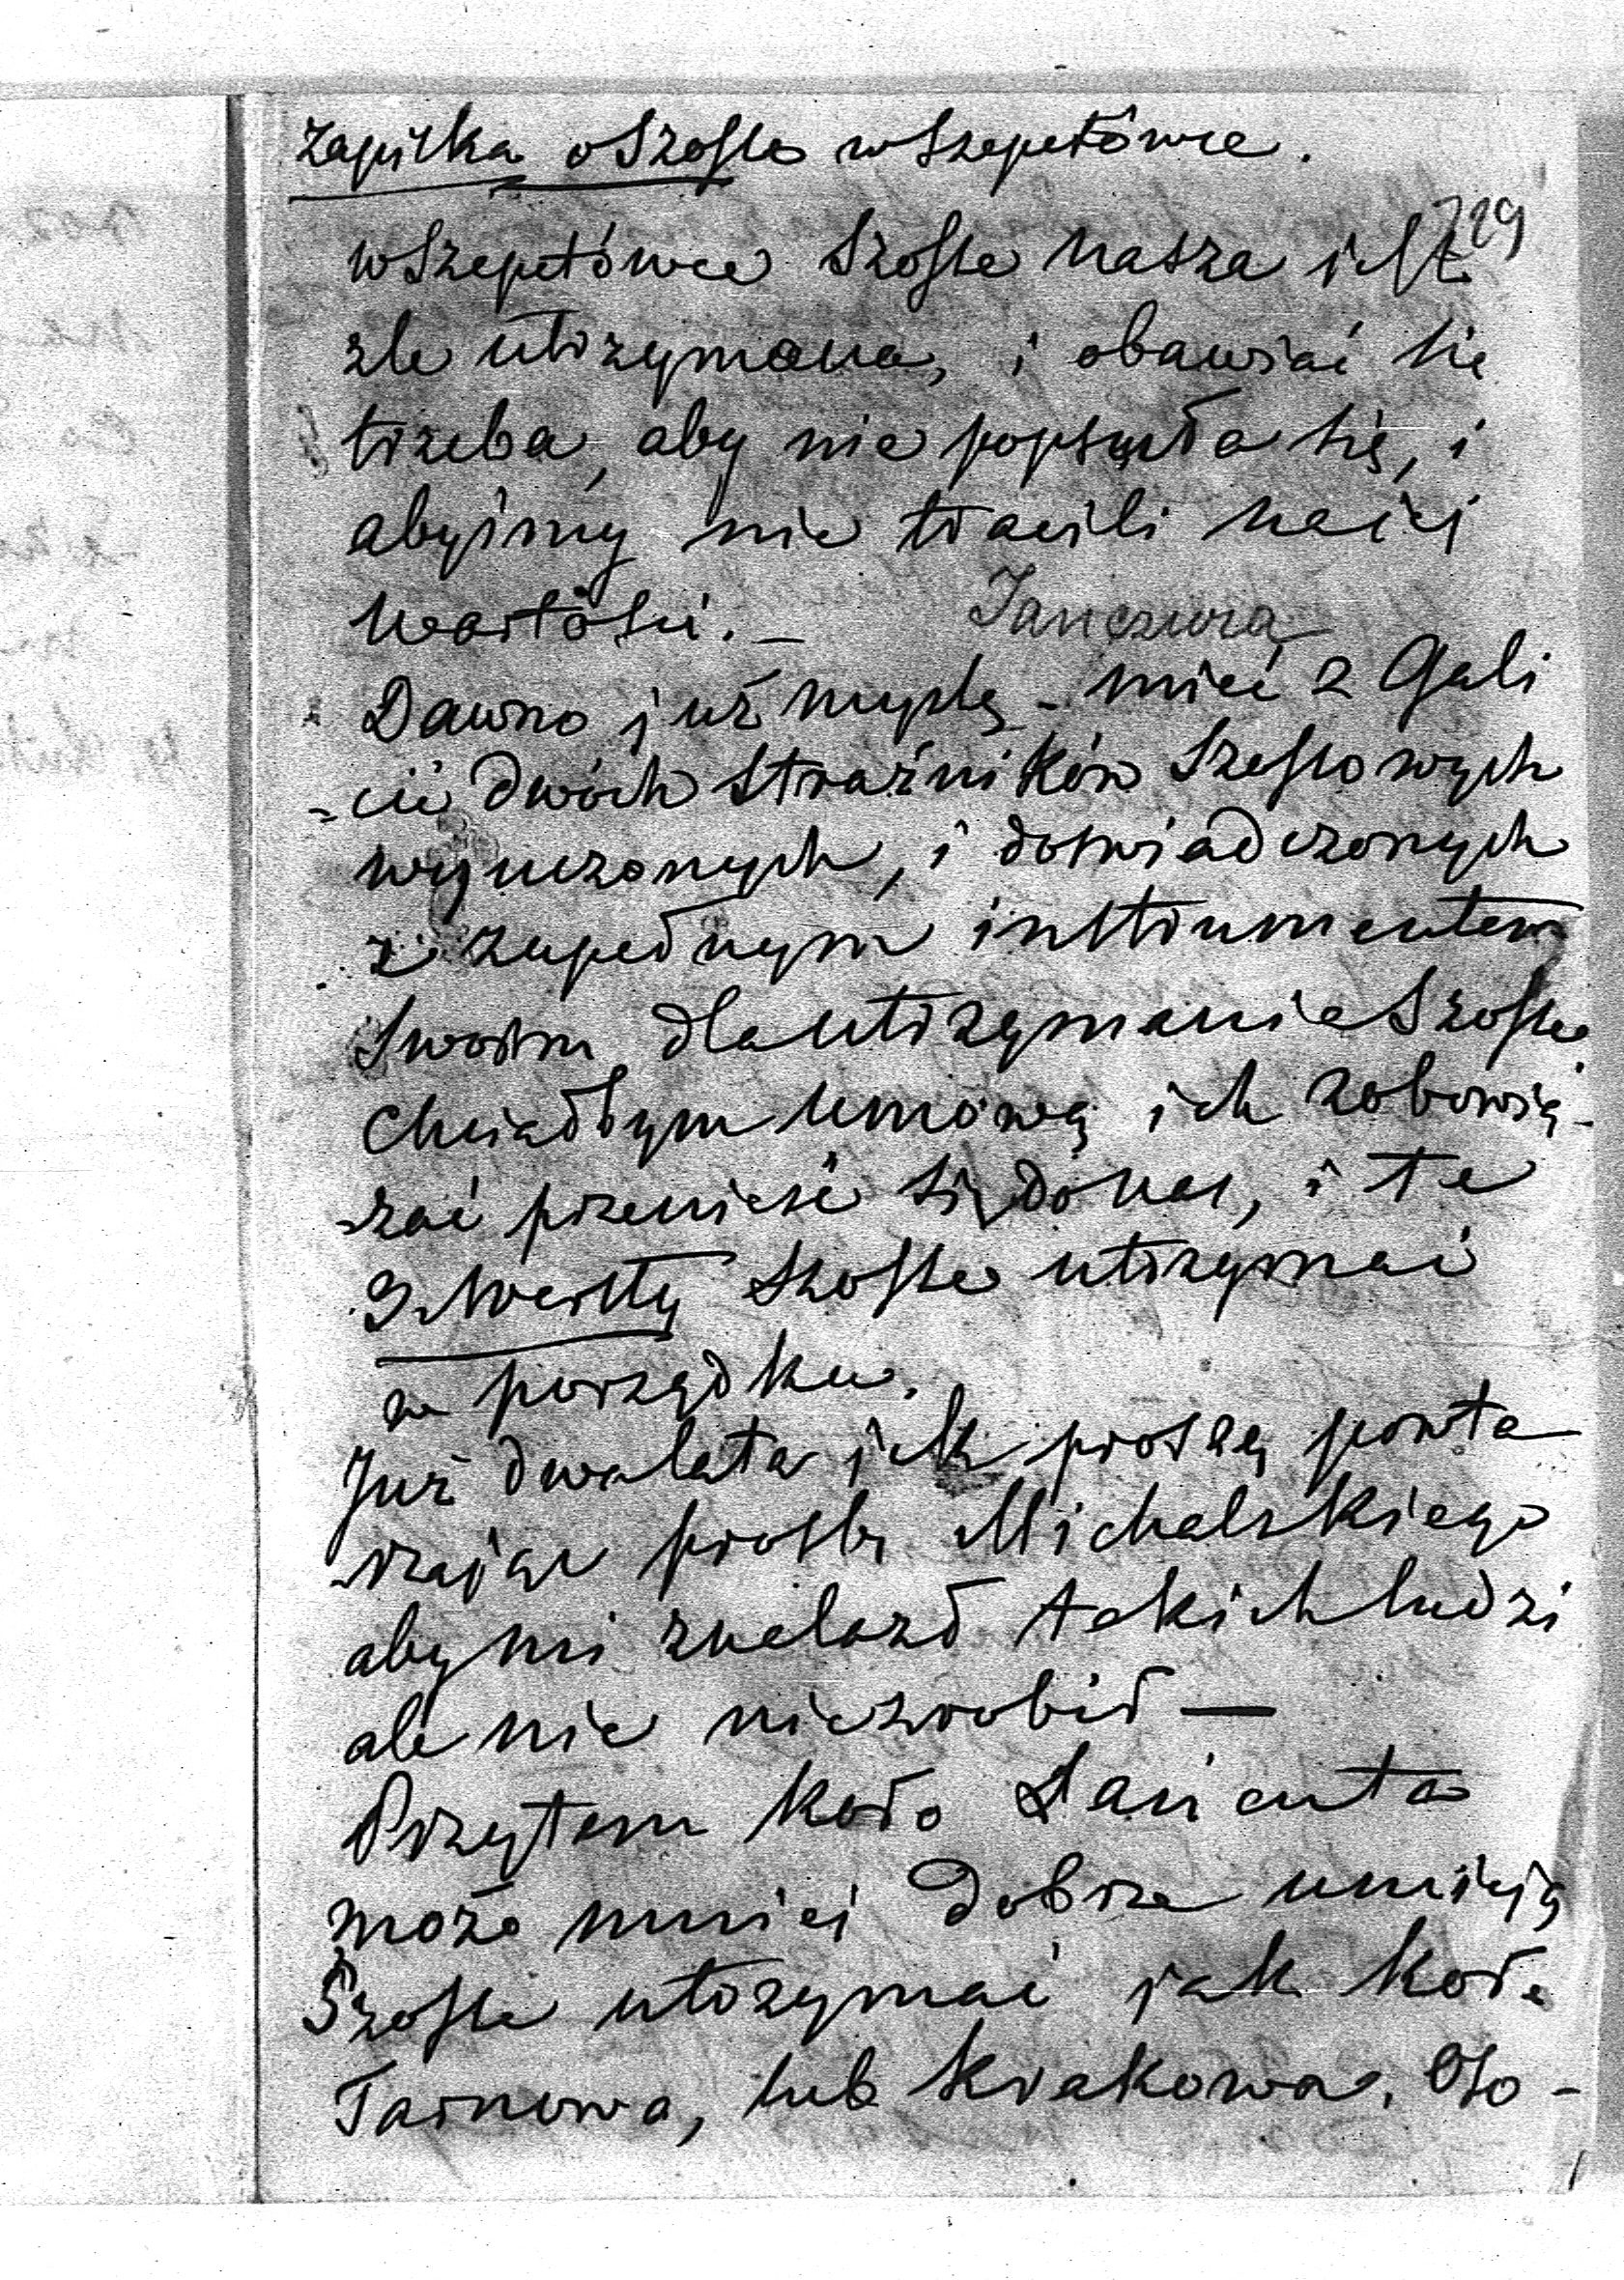 Zapiska o Szosse w Szepetówce.
729
w Szepetówce Szosse nasza jest
zle utrzymana, i obawiać sie
trzeba, aby nie popsuła się, i
abyśmy nie tracili na jej
wartości. —
Janczura
Dawno już myślę - mieć z Gali
=cii dwóch Strażników Szossowych
wyuczonych, i doświadczonych
z zupełnym instrumentem
Swoim dla utrzymania Szosse
Chciałbym umową ich zobowią-
=zać przenieść się do nas, i te
Wersty Szosse utrzymać
w porządku.
Już dwa lata jak proszę powta
=rzając prosby Michalskiego
aby mi znalazł takich ludzi
ale nic nie zrobił —
Przytem koło Łańcuta
może mniej dobrze umieją
Szosse utrzymać jak koło
Tarnowa, lub Krakowa. Oso-